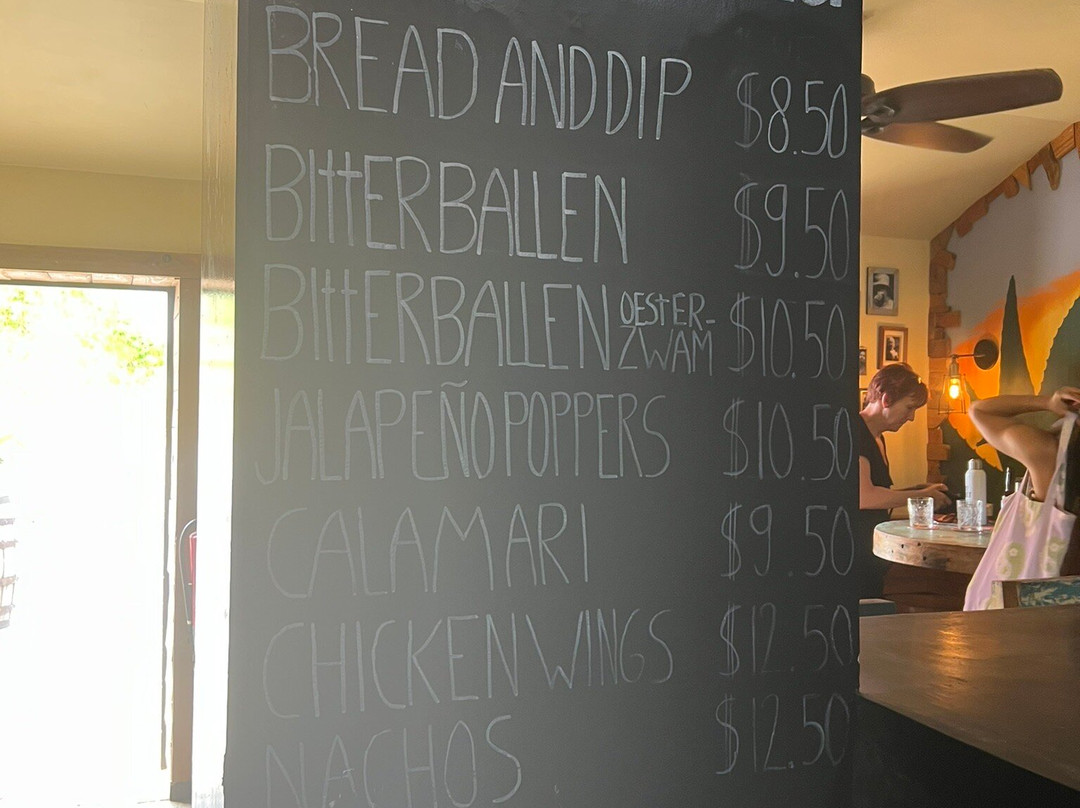 BREAD AND DIP $8.50
BITTERBALLEN $9.50
BITTERBALLEN OESTER-
ZWAM $10.50
JALAPEÑO POPPERS $10.50
CALAMARI $9.50
CHICKEN WINGS $12.50
NACHOS $12.50